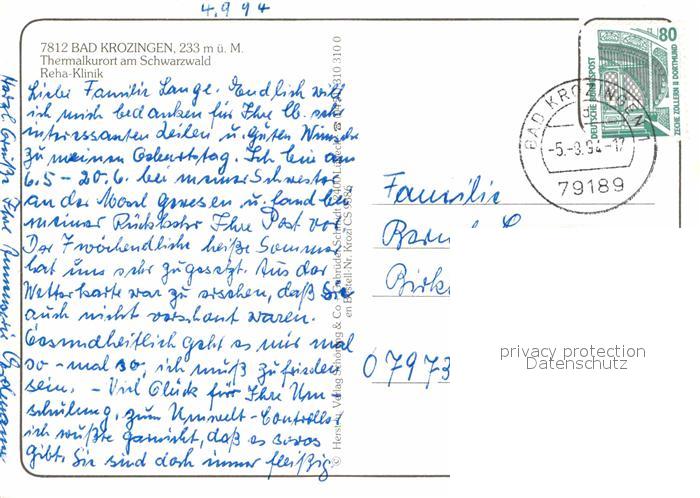 4.9 94
7812 BAD KROZINGEN, 233 m ü. M.
Thermalkurort am Schwarzwald
Reha-Klinik
Liebe Familie Lange. Endlich will
ich mich bedanken für Ihre lb. sehr
interessanten Zeilen u. guten Wünsche
zu meinem Geburtstag. Ich bin am
6.5 - 20.6. bei meiner Schwester
an der Mosel gewesen u. fand bei
meiner Rückkehr Ihre Post vor.
Der 7 wöchendliche heiße Sommer
hat uns sehr zugesetzt. Aus der
Wetterkarte war zu ersehen, daß Sie
auch nicht verschont waren.
Gesundheitlich geht es mir mal
so - mal so, ich muß zufrieden
sein. - Viel Glück für Ihre Um
schulung, zum Umwelt-Controller
ich wußte garnicht, daß es sowas
gibt. Sie sind doch immer fleißig
Herzl. Grüße Ihre
80
DEUTSCHE BUNDESPOST
ZECHE ZOLLERN II DORTMUND
BAD KROZINGEN 1
-5.-9.94-17
79189
Familie
Bern
Birk
07973
privacy protection
Datenschutz